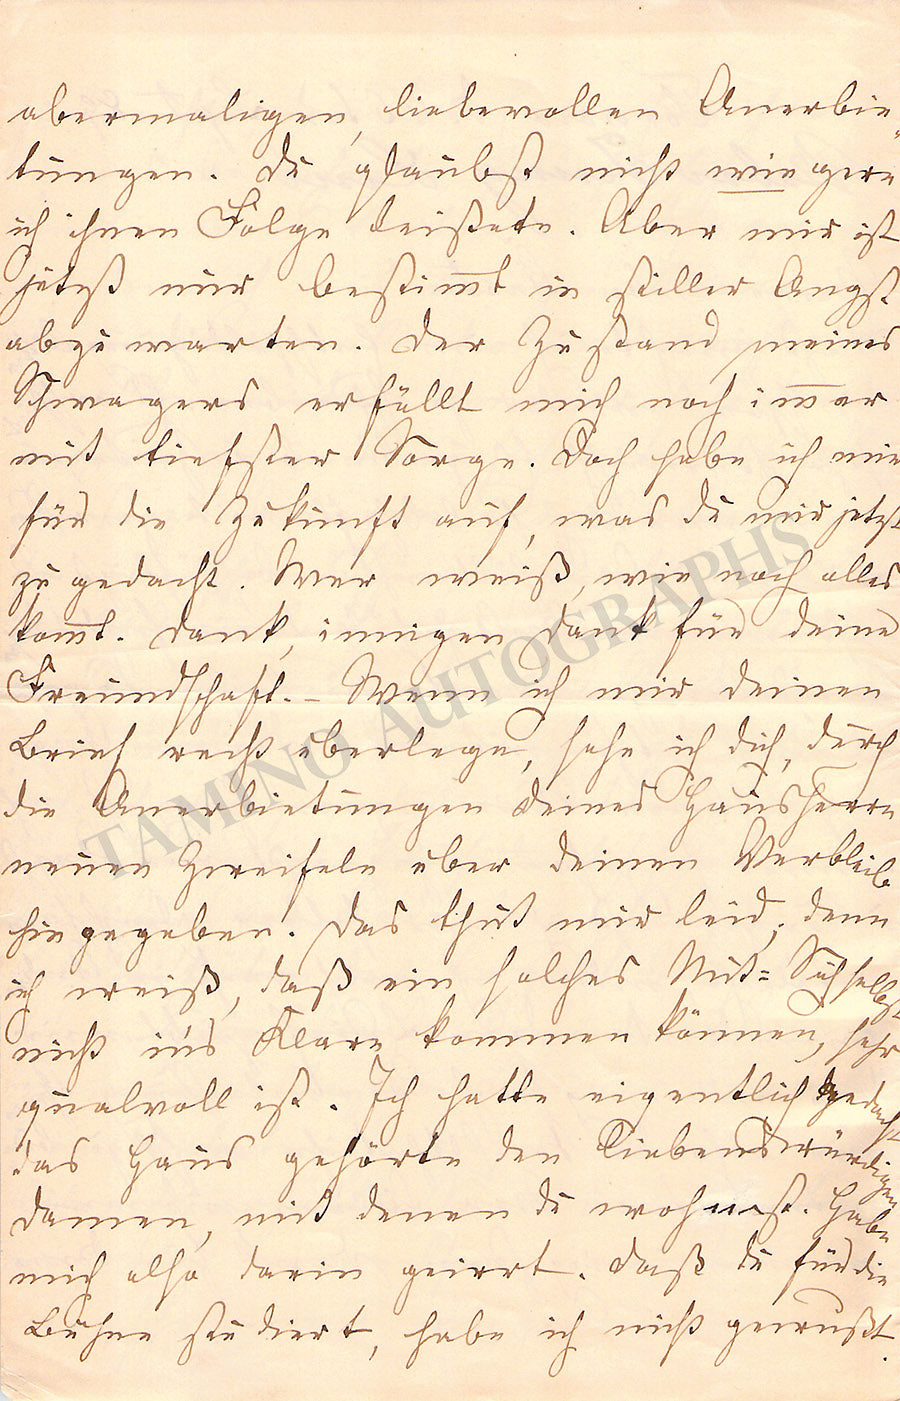 abermaligen, liebevollen Anerbie-
tungen. Du glaubst nicht wie gern
ich ihnen Folge leistete. Aber mir ist
jetzt nur bestimt in stiller Angst
abzuwarten. Der Zustand meines
Schwagers erfüllt mich noch immer
mit tiefster Sorge. Doch hebe ich mir
für die Zukunft auf, was du mir jetzt
zugedacht. Wer weiß, wie noch alles
komt. Dank, innigen Dank für deine
Freundschaft. – Wenn ich mir deinen
Brief recht überlege, sehe ich dich, durch
die Anerbietungen deines Hausherrn
neuen Zweifeln über deinen Verbleib
hingegeben. Das thut mir leid, denn
ich weiß, daß ein solches Mit=Sichselbst
nicht in's Klare kommen können, sehr
qualvoll ist. Ich hatte eigentlich gedacht
das Haus gehörte den Liebenswürdigen
Damen, mit denen du wohnest. Habe
mich also darin geirrt. Daß du für die
Bühne studiert, habe ich nicht gewußt.
TAMINO AUTOGRAPHS